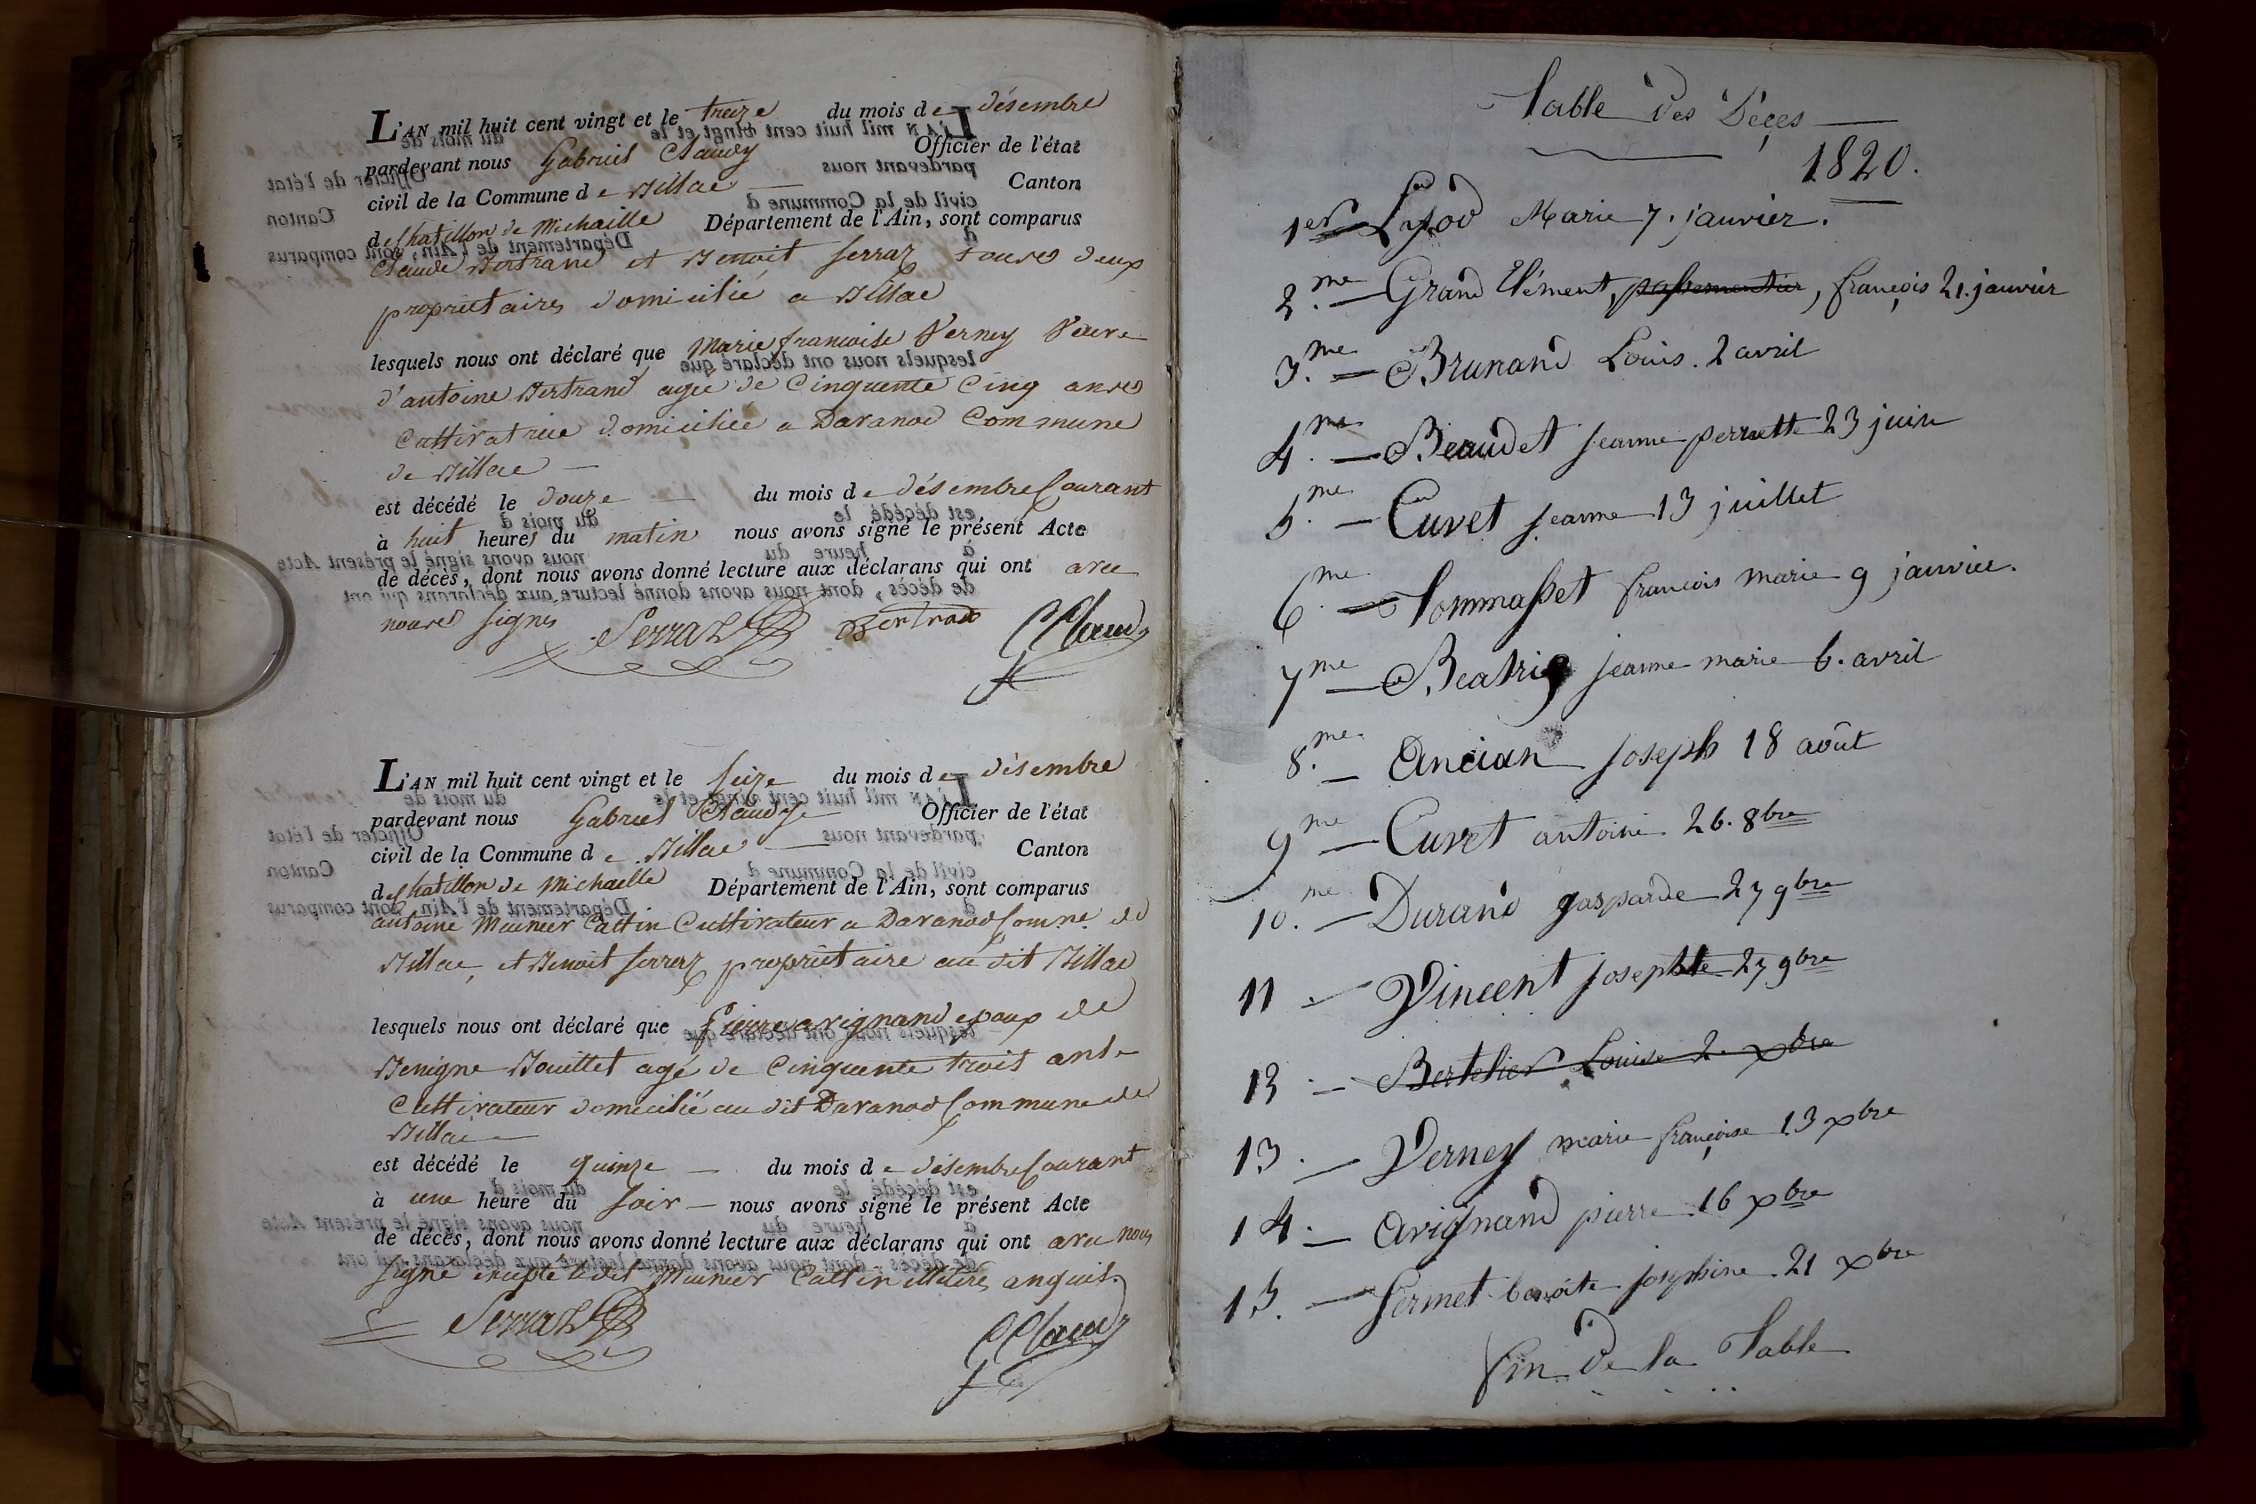 L'AN mil huit cent vingt et le treize du mois de désembre
pardevant nous Gabriel Claudy Officier de l'état
civil de la Commune de Billiac — Canton
de Chatillon de Michaille Département de l'Ain, sont comparus
Claude Bertrand et Benoit Serraz toures deux
proprietaires domicilié a Billiac
lesquels nous ont déclaré que Marie francoise Verney Veuve
d'antoine Bertrand agée de Cinquente Cinq anres
Cultivatrice domiciliée a Davanod Commune
de Billiac —
est décédé le douze — du mois de désembre Courant
à huit heures du matin nous avons signé le présent Acte
de décès, dont nous avons donné lecture aux déclarans qui ont avec
noures signés
Serraz Bertrand Claudy
L'AN mil huit cent vingt et le seize du mois de désembre
pardevant nous Gabriel Claudy Officier de l'état
civil de la Commune de Billiac — Canton
de Chatillon de Michaille Département de l'Ain, sont comparus
antoine Meunier Cattin Cultivateur a Davanod Comne de
Billiac, et Benoit Serraz proprietaire au dit Billiac
lesquels nous ont déclaré que Pierre avignand epoux de
Benigne Bouillet agé de Cinquente trois ans
Cultivateur domicilié au dit Davanod Commune de
Billiac
est décédé le quinze — du mois de désembre Courant
à une heure du soir — nous avons signé le présent Acte
de décès, dont nous avons donné lecture aux déclarans qui ont avec nous
signé excepté ledit Meunier Cattin illitéré enquis.
Serraz Claudy
Table des Déçes
1820.
1er Lyod Marie 7. janvier.
2.me — Grand Clément, passementier, françois 21. janvier
3.me — Brunand Louis. 2 avril
4.me — Beaudet jeanne perrette 23 juin
5.me — Cuvet jeanne 13 juillet
6.me — Tommasset francois marie 9 janvier.
7me — Beatrix jeanne marie 6. avril
8.me — Ancian joseph 18 août
9me — Cuvet antoine 26. 8bre
10.me — Durand gasparde 27 9bre
11 — Vincent josephte 27 9bre
12 — Bertelier Louise 2 xbre
13. — Verney marie françoise 13 xbre
14. — avignand pierre 16 xbre
15. — Sermet benoite josephine 21 xbre
fin de la Table